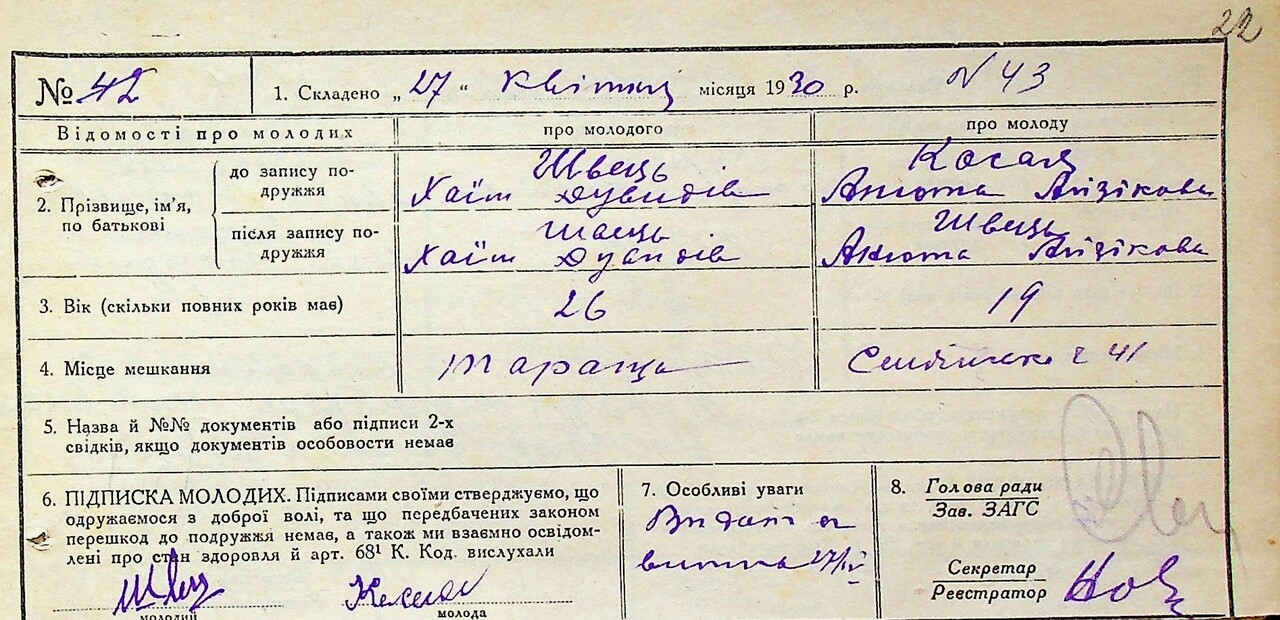 22
№ 42 1. Складено „ 27 “ Квітня місяця 1930 р. N 43
Відомості про молодих про молодого про молоду
2. Прізвище, ім’я, по батькові
до запису подружжя
Швець
Хаїм Дувидів
Косая
Анюта Айзікова
після запису подружжя
Швець
Хаїм Дувидів
Швець
Анюта Айзікова
3. Вік (скільки повних років має) 26 19
4. Місце мешкання Тараща 41
5. Назва й №№ документів або підписи 2-х
свідків, якщо документів особовости немає
6. ПІДПИСКА МОЛОДИХ. Підписами своїми стверджуємо, що
одружаємося з доброї волі, та що передбачених законом
перешкод до подружжя немає, а також ми взаємно освідом-
лені про стан здоровля й арт. 68¹ К. Код. вислухали
Швец
молодий молода
7. Особливі уваги
27/IV
8. Голова ради
Зав. ЗАГС
Секретар
Реєстратор